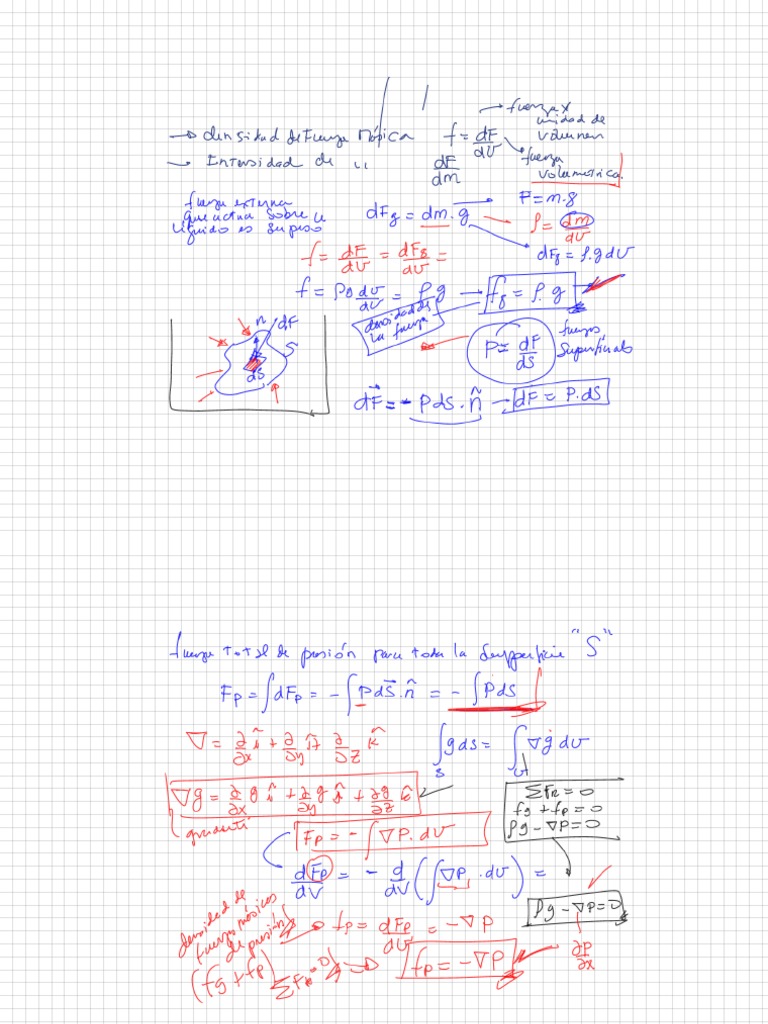 → densidad de Fuerza Másica f = dF/dV → fuerza x unidad de volumen
→ Intensidad de " dF/dm → fuerza volumetrica.
fuerza externa que actua sobre
liquido es su peso
dFg = dm·g → F = m·g
→ ρ = dm/dV
dFg = ρ·g dV
f = dF/dV = dFg/dV =
f = ρg dV/dV = ρg → fg = ρ·g
densidad de la fuerza
P = dF/dS fuerzas Superficiales
n dF
S
dS
dF⃗ = - P dS · n̂ → dF = P·dS
fuerza total de presión para toda la superficie "S"
Fp = ∫dFp = - ∫P dS⃗·n̂ = - ∫P dS
∇ = ∂/∂x î + ∂/∂y ĵ ∂/∂z k̂
∫S g ds = ∫V ∇g dv
∇g = ∂/∂x g î + ∂/∂y g ĵ + ∂g/∂z k̂
gradiente
ΣFR = 0
fg + fp = 0
ρg - ∇P = 0
Fp = - ∫∇P. dv
dFp/dV = - d/dV (∫∇P · dv) =
ρg - ∇P = 0
∂P/∂x
densidad de fuerzas másicas de presión
→ fp = dFp/dV = - ∇P
(fg + fp) ΣFR = 0 → fp = - ∇P